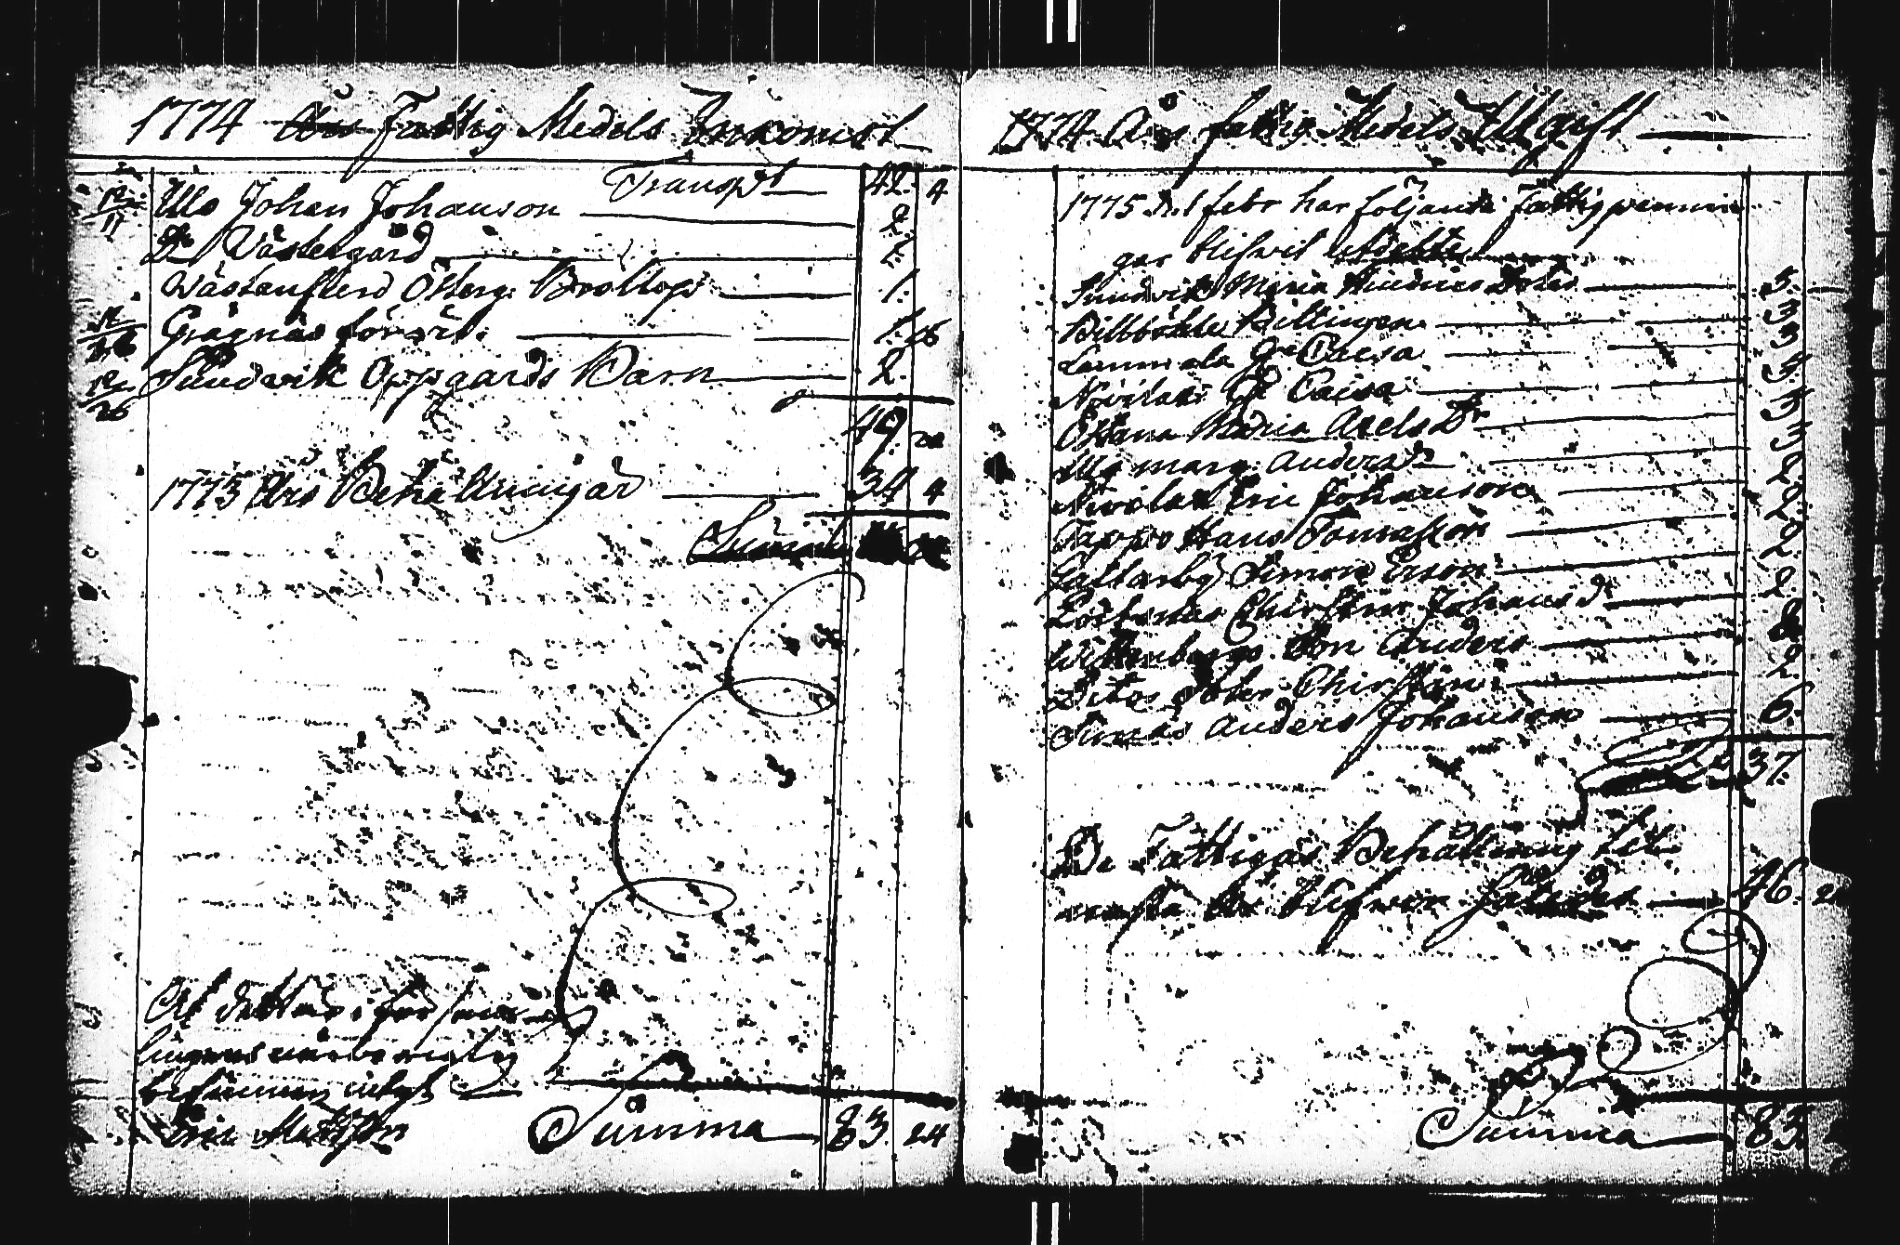 1774 Års Fattig Medels Inkomst
Transpt 42. 4
12/11 Ulo Johan Johanson 2.
Do Västergård 1.
Västanfierd Österg: Brollops 1.
Grägnäs 1. 16
12/26 Sundvik Oppgards Barn 2.
49. 20
1773 Års Behållningar 34 4
Summa
At dettar i för sam-
lingens närwaro
befunnen
Eric Mattsson
Summa 83. 24
1774 Års fattig Medels Utgift
1775 d. 1 febr har följande fattig penning-
gar blifwit utdelte
Sundvik Maria Hindrics Doter 5.
Billböhle Billingen 3
Lammala Gr. Caisa 3
Nivilax Caisa 3.
Östana Maria Axels Dr 3
Ulo marg. Anders Dr 3
Nivilax Eric Johanson 2.
Tappo Hans Tomasson 2.
Gallarby Simon Erson 2.
Löfsnäs Christin Johans dr 2
Wittenbergs Son Anders 2
Ditos Doter Christin 2.
Sunnäs Anders Johanson 6.
37.
De Fattigas Behållning til
nästa År blifwer således 46. 24
Summa 83.